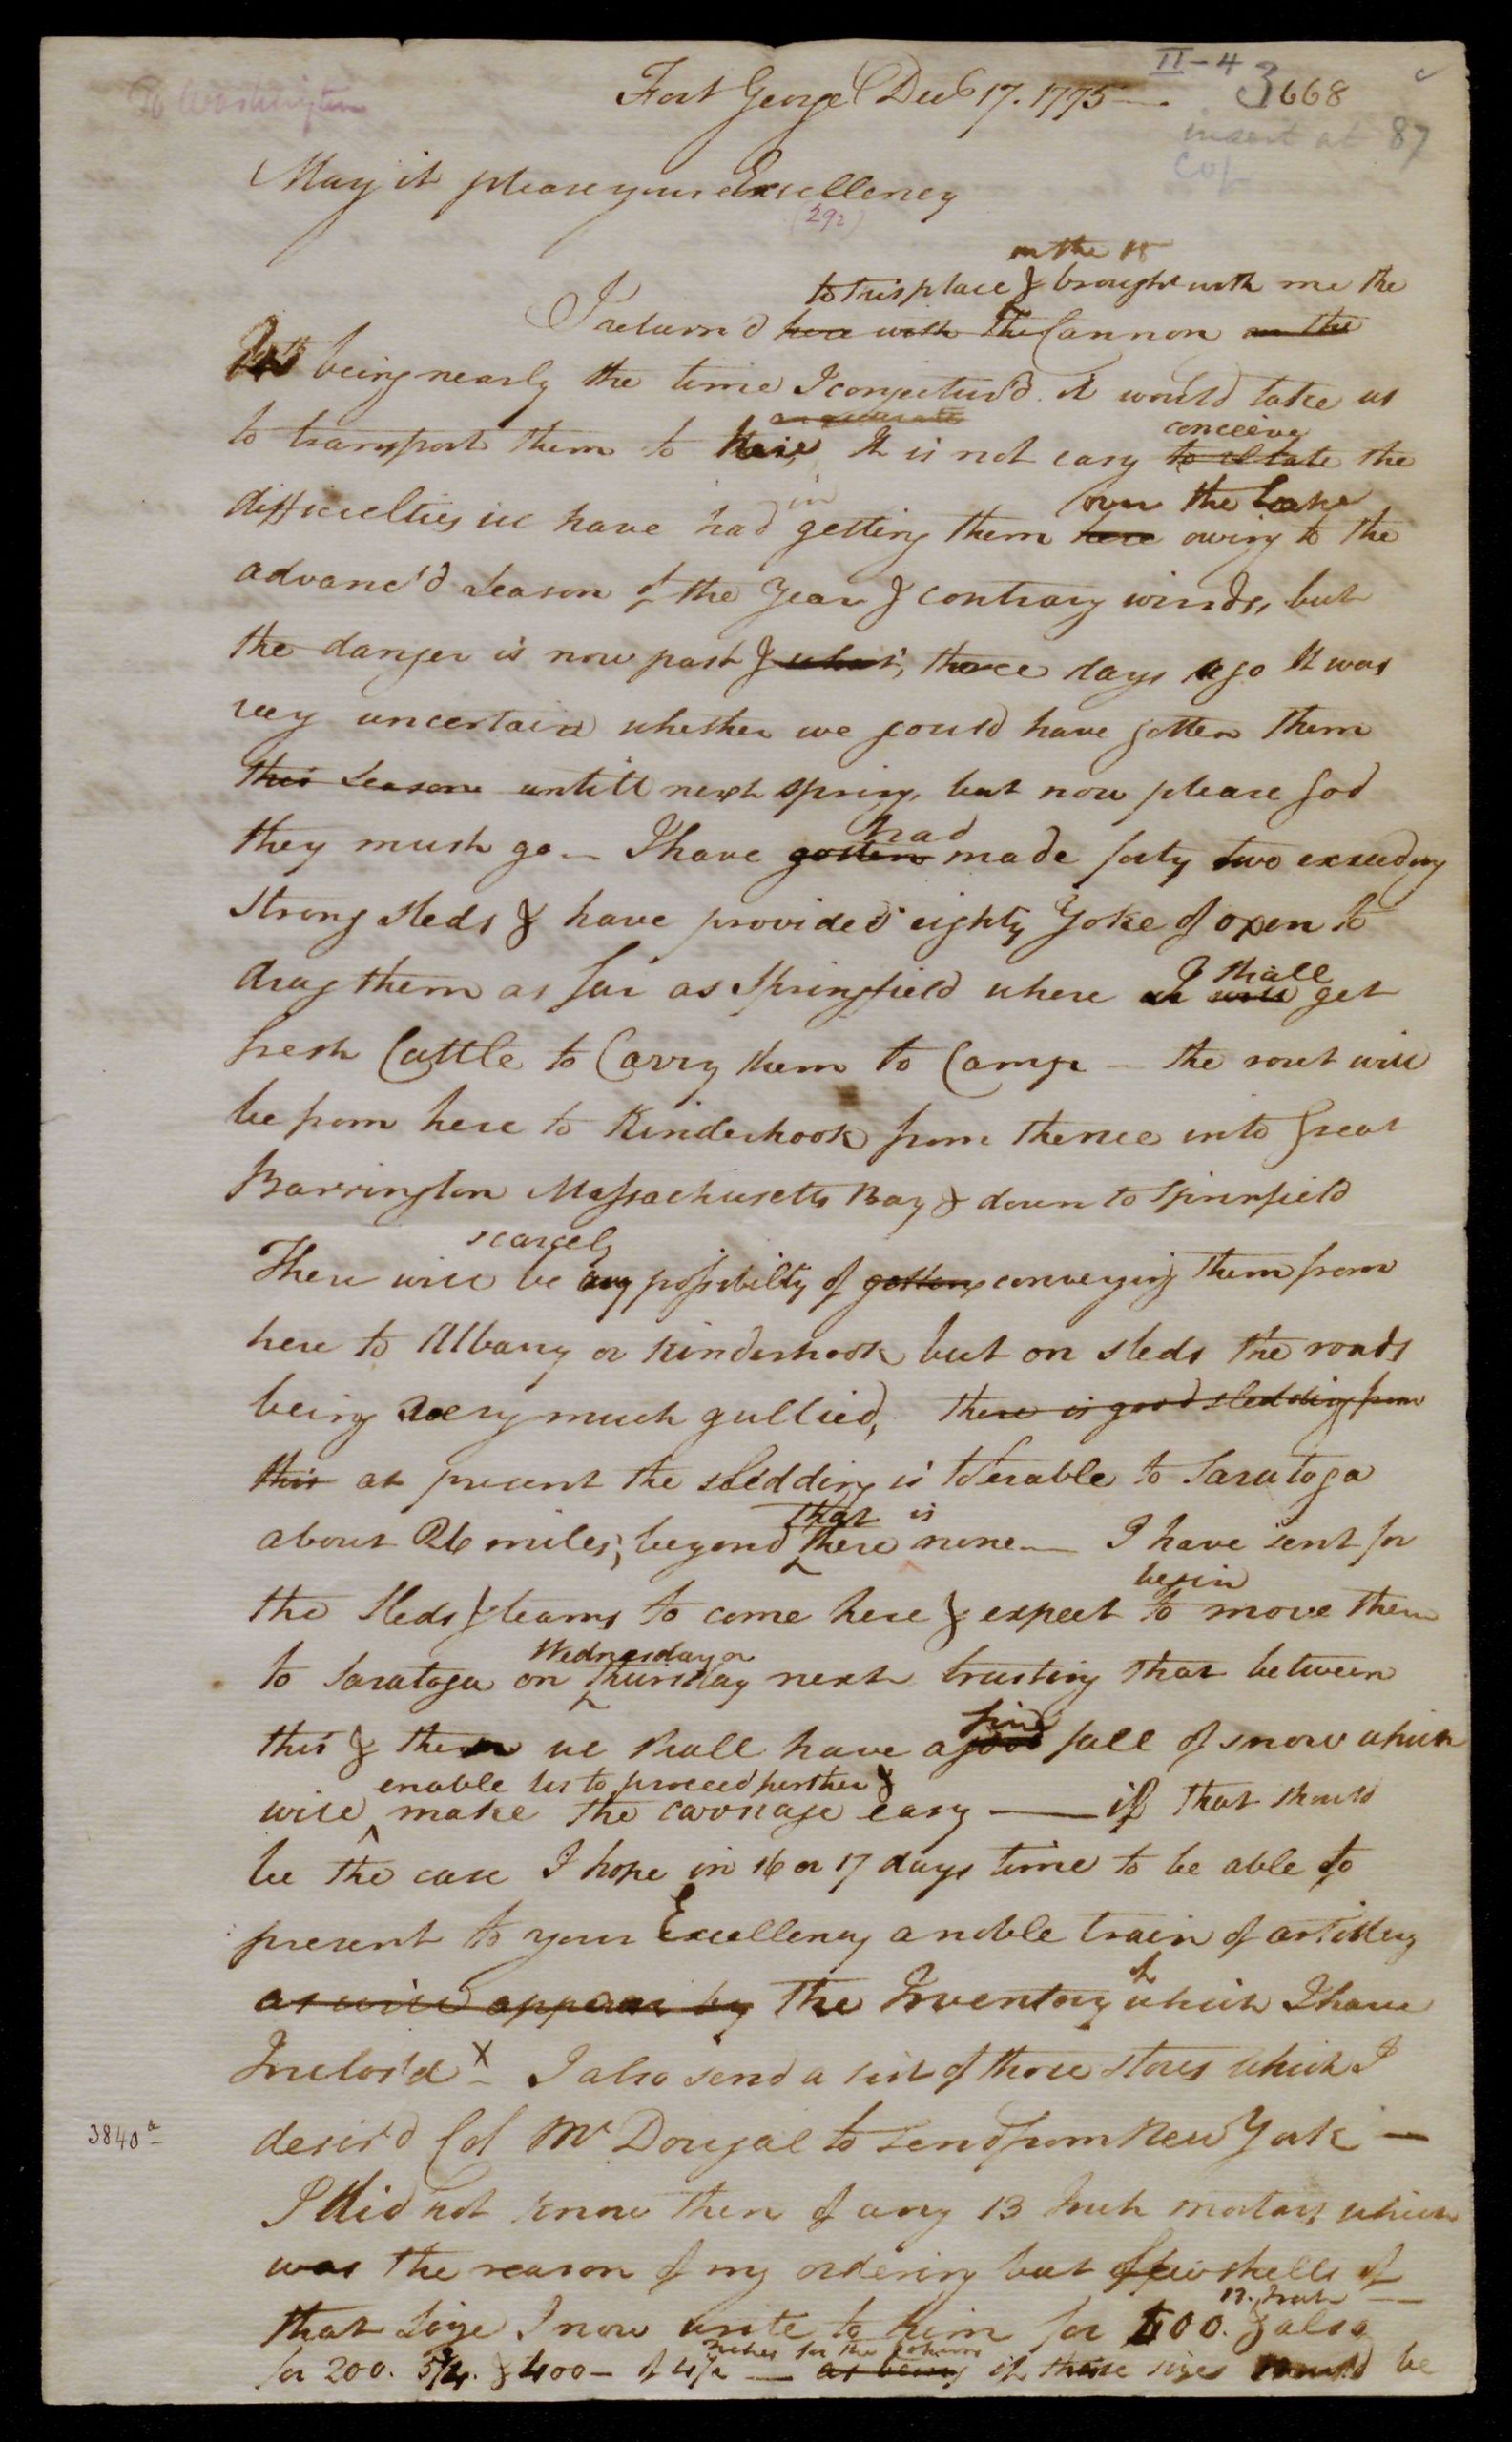 To Washington
II-4
3668
insert at 87
Cop
Fort George Decb 17. 1775 —.
May it please your Excellency
(292)
on the 15
to this place & brought with me the
I return'd here with The Cannon on the
being nearly the time I conjectur'd it would take us
to transport them to here, It is not easy to
conceive
the
difficulties we have had in getting them here owing to the
over the Lake
advanc'd Season of the Year & contrary winds, but
the danger is now past & what, three days ago It was
very uncertain whether we could have gotten them
this Season untill next spring, but now please God
they must go — I have gotten made forty two exceeding
had
strong sleds & have provided eighty Yoke of oxen to
drag them as far as Springfield where we will get
I shall
fresh Cattle to Carry them to Camp — the rout will
be from here to Kinderhook from thence into Great
Barrington Massachusetts Bay & down to Springfield
scarcely
There will be any possibilty of getting conveying them from
here to Albany or Kinderhook but on sleds the roads
being very much gullied, there is good sledding from
this at present the sledding is tolerable to Saratoga
about 26 miles; beyond there none — I have sent for
that is
the Sleds & teams to come here & expect to move them
begin
to Saratoga on Thursday next trusting that between
Wednesday or
this & then we shall have a good fall of snow which
fine
enable us to proceed further &
will make the carriage easy — if that should
be the case I hope in 16 or 17 days time to be able to
present to your Excellency a noble train of artillery
as will appear by The Inventory of which I have
Inclos'd X — I also send a list of those stores which I
3840a
desir'd Col McDougal to send from New York —
I did not know then of any 13 Inch mortars which
was the reason of my ordering but a few shells of
that Size I now write to him for 500. & also
13. Inch —
for 200. 5 3/4. & 400 — of 4 1/2 — as being if these sizes could be
Inches for the Cohorns